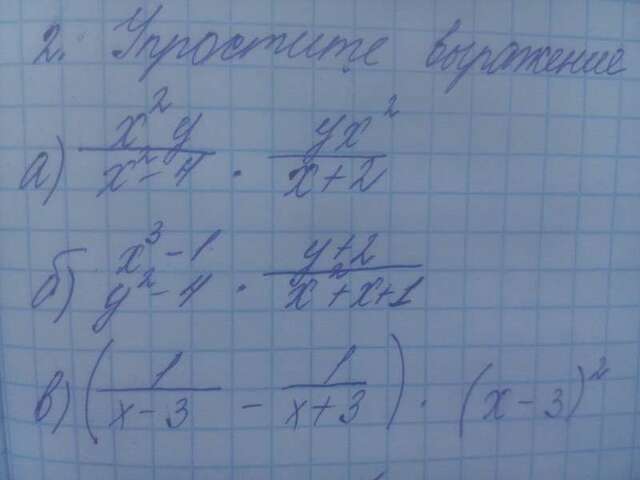 2. Упростите выражение
а) x²y / x²-4 · yx² / x+2
б) x³-1 / y²-4 · y+2 / x²+x+1
в) (1 / x-3 - 1 / x+3) · (x-3)²